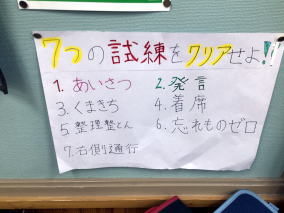 7つの試練をクリアせよ!!
1. あいさつ 2. 発言
3. くまきち 4. 着席
5. 整理整とん 6. 忘れものゼロ
7. 右側通行